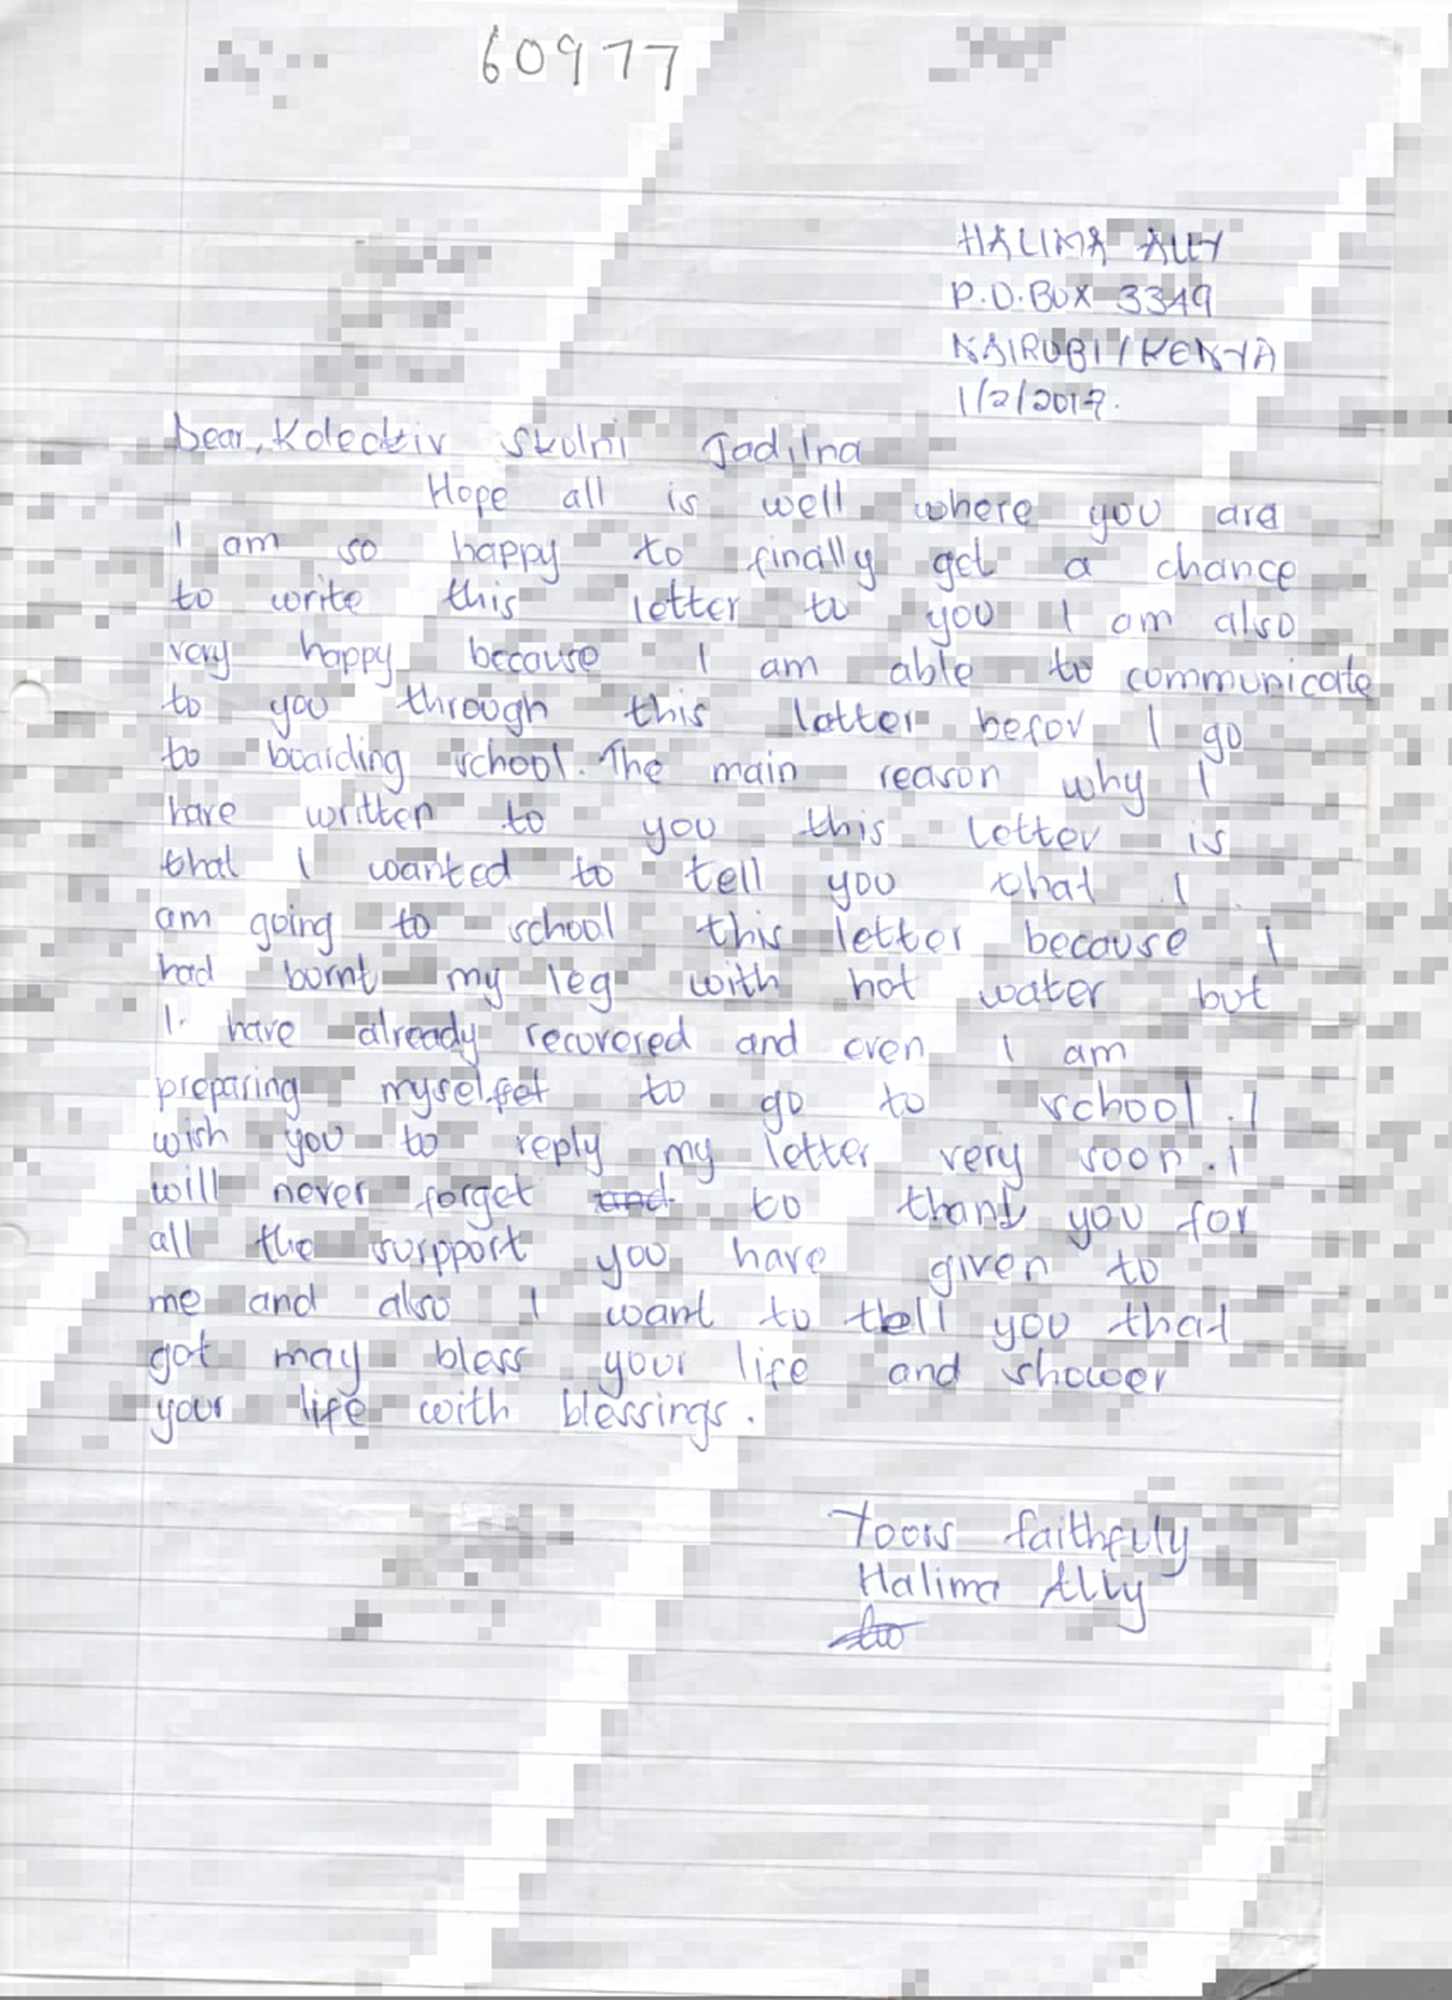 60977
HALIMA ALLY
P.O.BOX 3349
NAIROBI/KENYA
1/2/2017.
Dear, Kolectiv Skolni Jadilna
Hope all is well where you are
I am so happy to finally get a chance
to write this letter to you I am also
very happy because I am able to communicate
to you through this letter befor I go
to boarding school. The main reason why I
have written to you this letter is
that I wanted to tell you that I
am going to school this letter because I
had burnt my leg with hot water but
I have already recovered and even I am
preparing myselfet to go to school. I
wish you to reply my letter very soon. I
will never forget and to thank you for
all the surpport you have given to
me and also I want to tell you that
got may bless your life and shower
your life with blessings.
Yoors faithfuly
Halima Ally